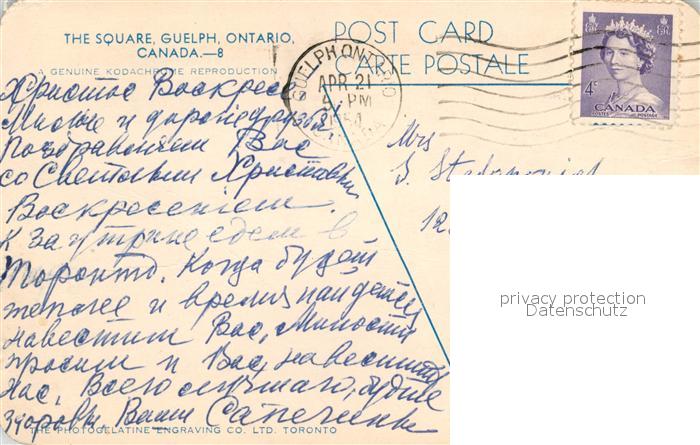 THE SQUARE, GUELPH, ONTARIO,
CANADA.—8
A GENUINE KODACHROME REPRODUCTION
POST CARD
CARTE POSTALE
GUELPH ONTARIO
APR 21
4 PM
1954
4¢
CANADA
POSTES POSTAGE
Христос Воскресе
Милые и дорогие друзья,
Поздравляем Вас
со Светлым Христовым
Воскресением.
К заутрине едем в
Торонто. Когда будет
теплее и время найдется
навестим Вас, Милости
просим и Вас, навестить
нас, Всего лучшего, будьте
здоровы, Ваши
Mrs
S.
12
privacy protection
Datenschutz
THE PHOTOGELATINE ENGRAVING CO. LTD. TORONTO